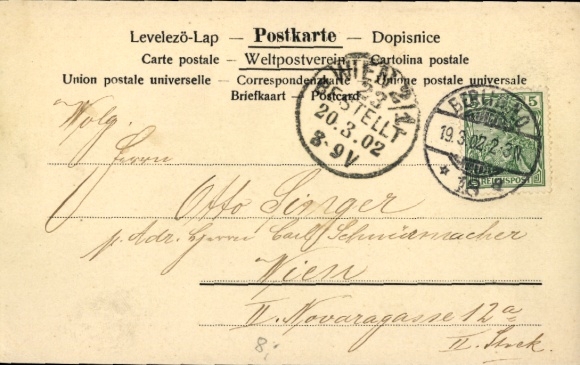 Levelező-Lap — Postkarte — Dopisnice
Carte postale — Weltpostverein — Cartolina postale
Union postale universelle — Correspondenzkarte — Unione postale universale
Briefkaart — Postcard
WIEN 2/1
BESTELLT
20.3.02
8-9V
BERLIN
19.3.02.2-3N
* 18 a
5
REICHSPOST
Wolg.
Herrn
Otto Singer
p. Adr. Herrn Carl Schürmacher
Wien
II. Novaragasse 12a
II. Stock.
8.